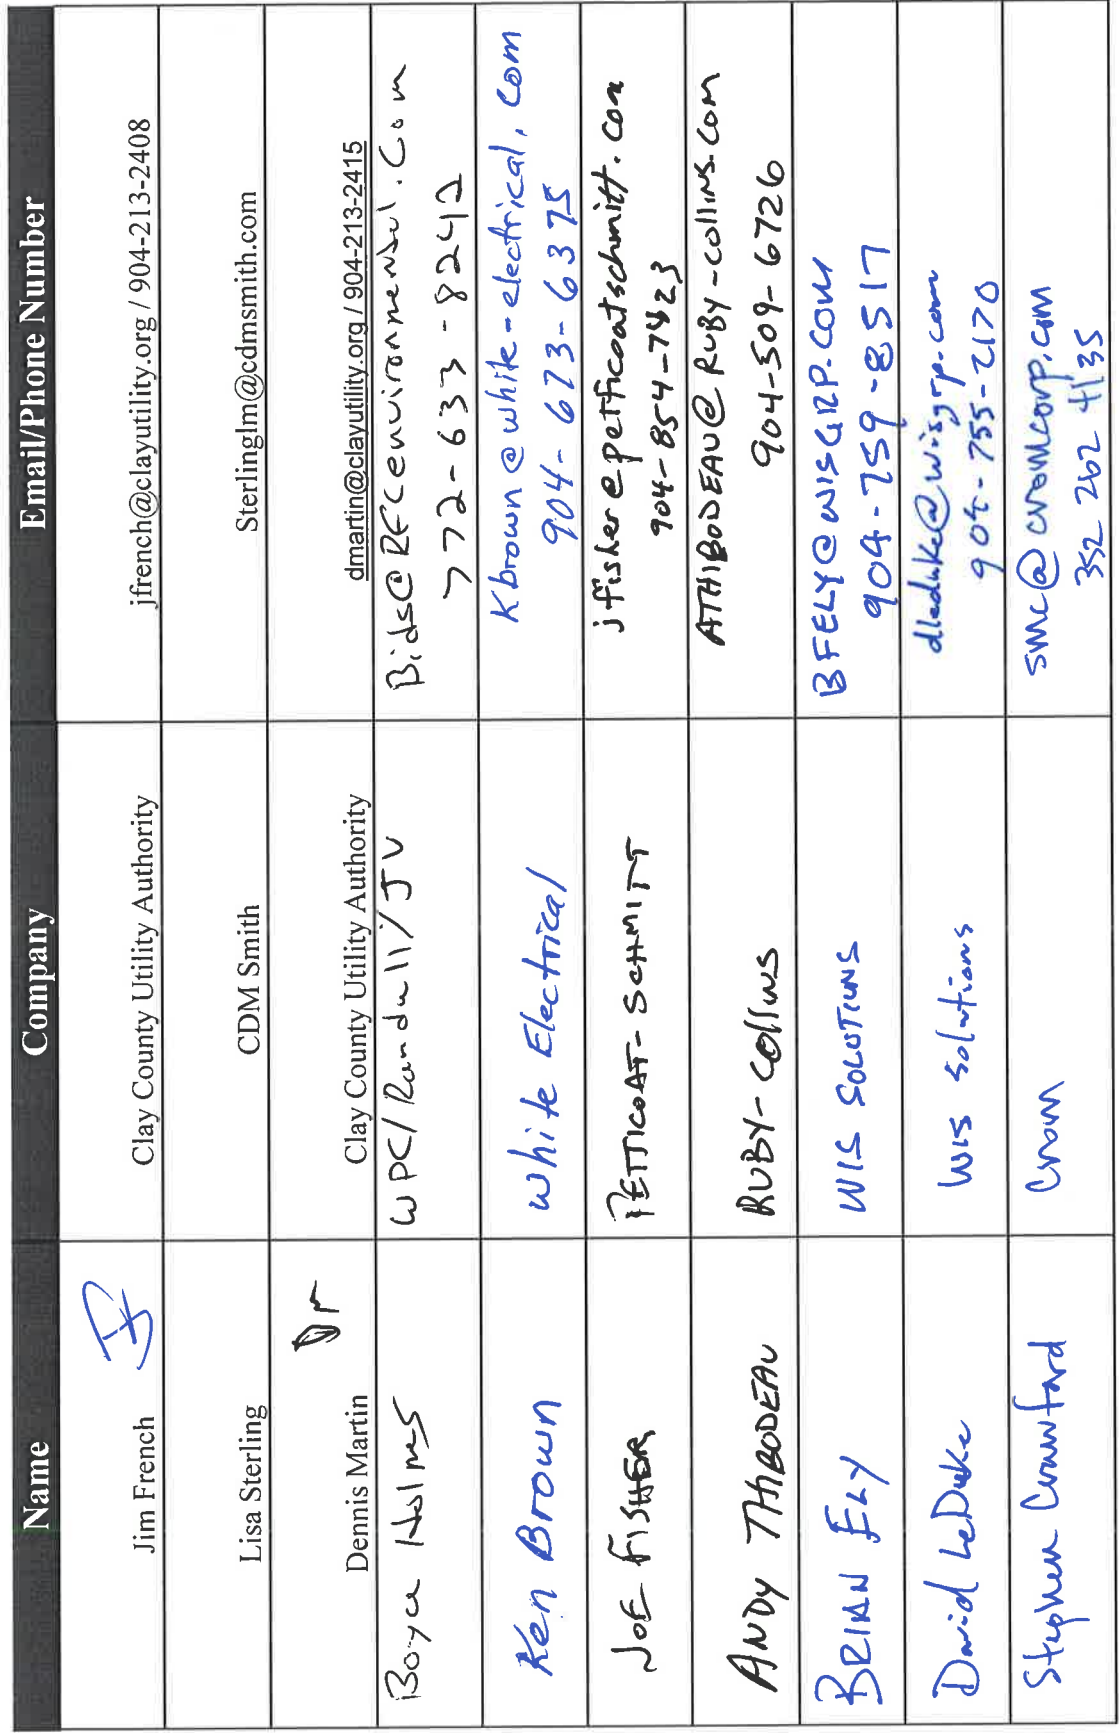 Name Company Email/Phone Number
Jim French Clay County Utility Authority jfrench@clayutility.org / 904-213-2408
Lisa Sterling CDM Smith Sterlinglm@cdmsmith.com
Dennis Martin Clay County Utility Authority dmartin@clayutility.org / 904-213-2415
Boyce Holmes WPC/Randulli/JV Bids@RFCenvironmental.Com
772-633-8242
Ken Brown White Electrical Kbrown@white-electrical.com
904-673-6375
JOE FISHER PETTICOAT-SCHMITT jfisher@petticoatschmitt.com
904-854-7423
ANDY THIBODEAU RUBY-COLLINS ATHIBODEAU@RUBY-COLLINS.COM
904-509-6726
BRIAN FLY WIS SOLUTIONS BFELY@WISGRP.COM
904-759-8517
David LeDuke WIS Solutions dleduke@wisgrp.com
904-755-2170
Stephen Crawford Crom smc@cromcorp.com
352 262 4135